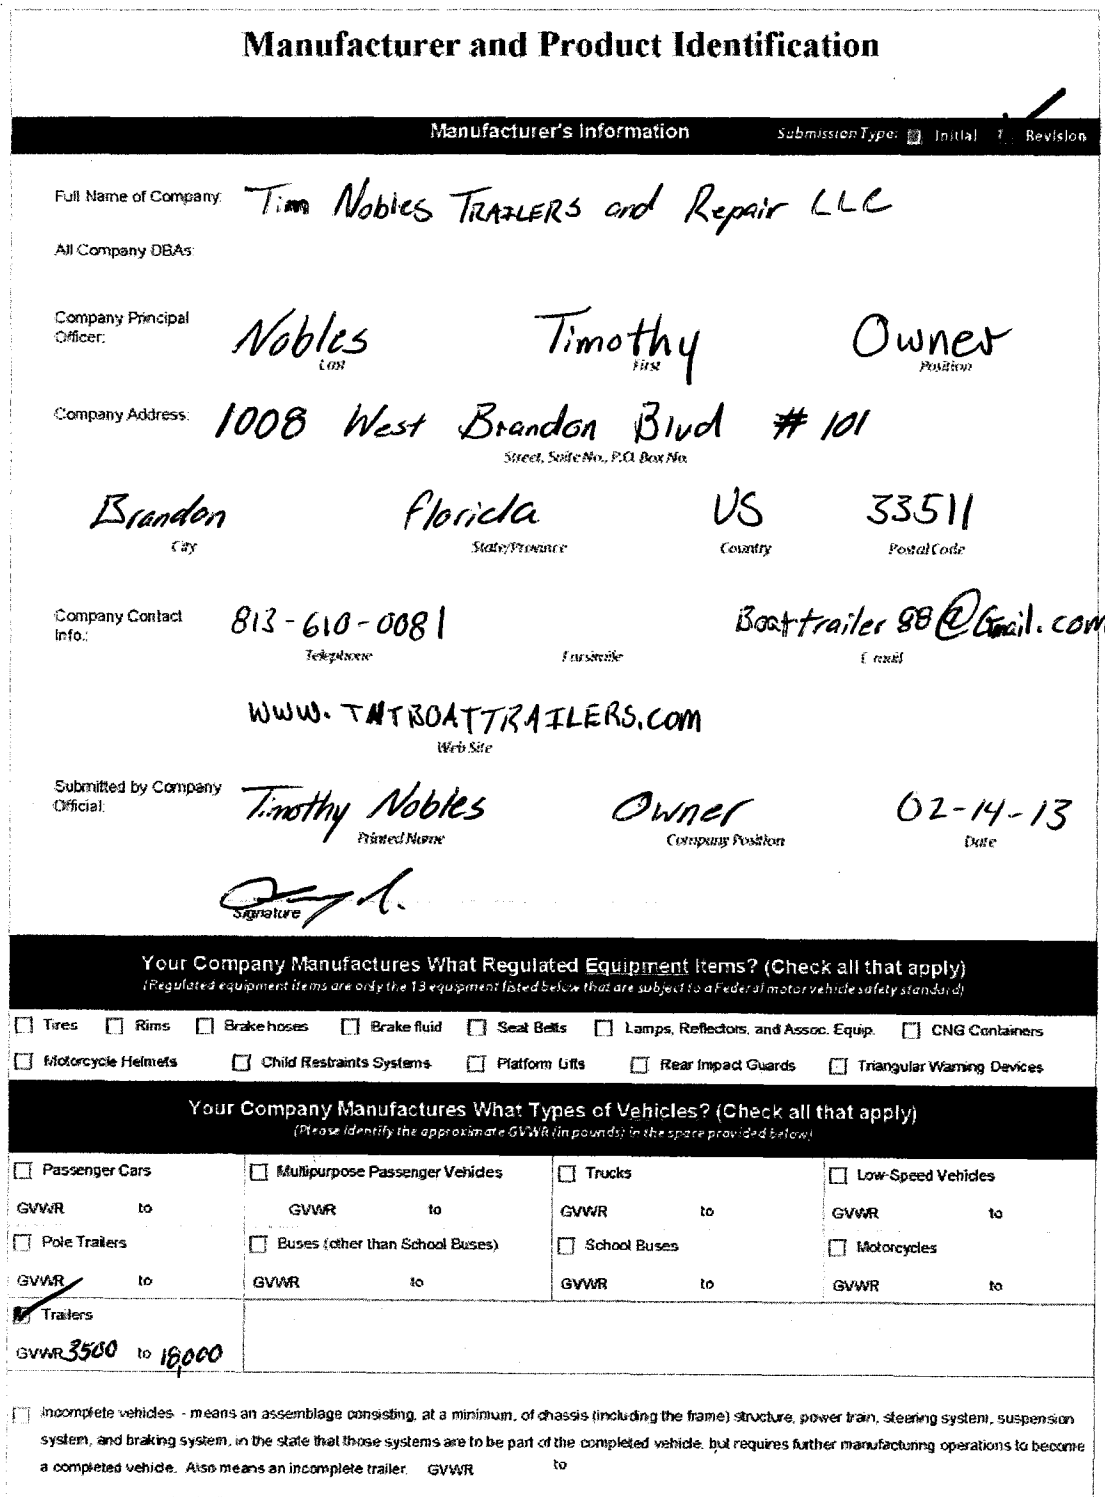 Manufacturer and Product Identification
Manufacturer's Information Submission Type: Initial Revision
Full Name of Company: Tim Nobles TRAILERS and Repair LLC
All Company DBAs:
Company Principal Officer: Nobles Timothy Owner
Last First Position
Company Address: 1008 West Brandon Blvd # 101
Street, Suite No., P.O. Box No.
Brandon Florida US 33511
City State/Province Country Postal Code
Company Contact Info.: 813-610-0081 Boattrailer88@Gmail.com
Telephone Facsimile E mail
WWW.TNTBOATTRAILERS.COM
Web Site
Submitted by Company Official: Timothy Nobles Owner 02-14-13
Printed Name Company Position Date
Signature
Your Company Manufactures What Regulated Equipment Items? (Check all that apply)
(Regulated equipment items are only the 13 equipment listed below that are subject to a Federal motor vehicle safety standard)
Tires Rims Brake hoses Brake fluid Seat Belts Lamps, Reflectors, and Assoc. Equip. CNG Containers
Motorcycle Helmets Child Restraints Systems Platform Lifts Rear Impact Guards Triangular Warning Devices
Your Company Manufactures What Types of Vehicles? (Check all that apply)
(Please identify the approximate GVWR (in pounds) in the space provided below)
Passenger Cars Multipurpose Passenger Vehicles Trucks Low-Speed Vehicles
GVWR to GVWR to GVWR to GVWR to
Pole Trailers Buses (other than School Buses) School Buses Motorcycles
GVWR to GVWR to GVWR to GVWR to
Trailers
GVWR 3500 to 18,000
Incomplete vehicles - means an assemblage consisting, at a minimum, of chassis (including the frame) structure, power train, steering system, suspension
system, and braking system, in the state that those systems are to be part of the completed vehicle, but requires further manufacturing operations to become
a completed vehicle. Also means an incomplete trailer. GVWR to